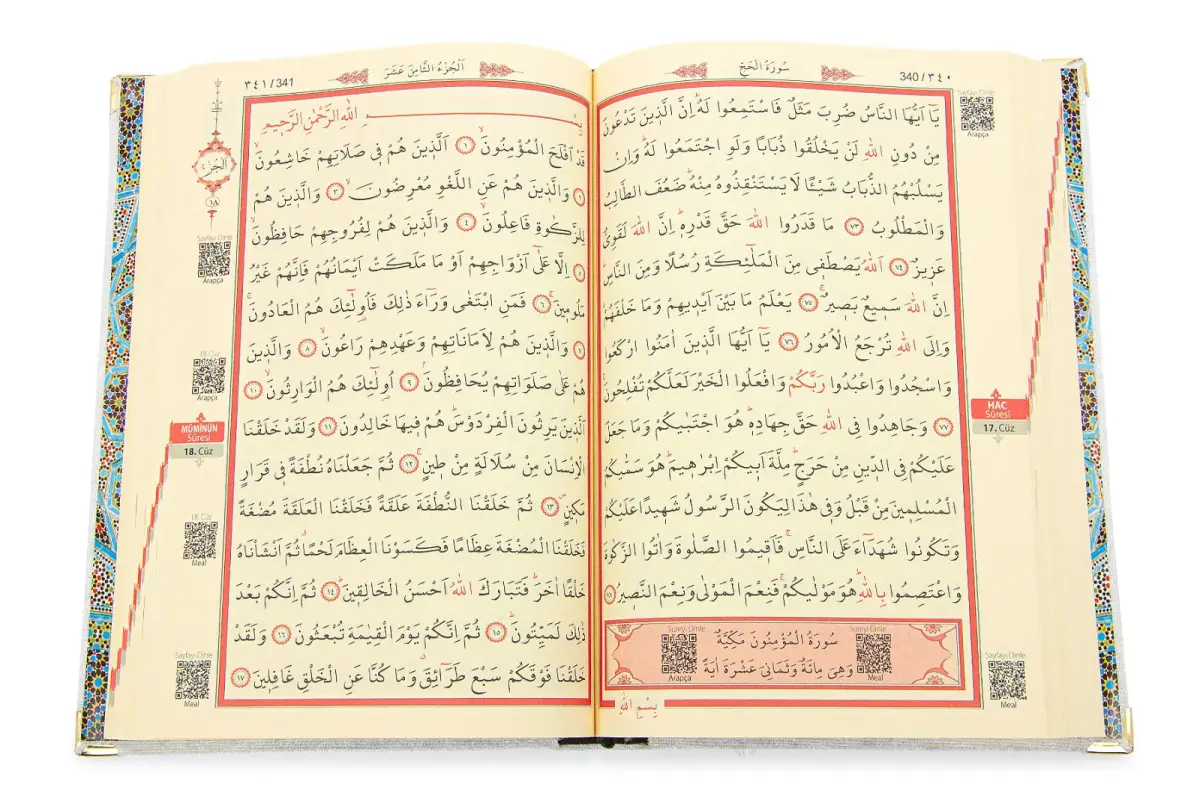 ٣٤٠/340
سُورَةُ الْحَجِّ
يَٓا اَيُّهَا النَّاسُ ضُرِبَ مَثَلٌ فَاسْتَمِعُوا لَهُۜ اِنَّ الَّذ۪ينَ تَدْعُونَ
مِنْ دُونِ اللّٰهِ لَنْ يَخْلُقُوا ذُبَابًا وَلَوِ اجْتَمَعُوا لَهُۜ وَاِنْ
يَسْلُبْهُمُ الذُّبَابُ شَيْـًٔا لَا يَسْتَنْقِذُوهُ مِنْهُۜ ضَعُفَ الطَّالِبُ
وَالْمَطْلُوبُ ﴿٧٣﴾ مَا قَدَرُوا اللّٰهَ حَقَّ قَدْرِه۪ۜ اِنَّ اللّٰهَ لَقَوِيٌّ
عَز۪يزٌ ﴿٧٤﴾ اَللّٰهُ يَصْطَف۪ي مِنَ الْمَلٰٓئِكَةِ رُسُلًا وَمِنَ النَّاسِۜ
اِنَّ اللّٰهَ سَم۪يعٌ بَص۪يرٌۚ ﴿٧٥﴾ يَعْلَمُ مَا بَيْنَ اَيْد۪يهِمْ وَمَا خَلْفَهُمْۜ
وَاِلَى اللّٰهِ تُرْجَعُ الْاُمُورُ ﴿٧٦﴾ يَٓا اَيُّهَا الَّذ۪ينَ اٰمَنُوا ارْكَعُوا
وَاسْجُدُوا وَاعْبُدُوا رَبَّكُمْ وَافْعَلُوا الْخَيْرَ لَعَلَّكُمْ تُفْلِحُونَۚ
﴿٧٧﴾ وَجَاهِدُوا فِي اللّٰهِ حَقَّ جِهَادِه۪ۜ هُوَ اجْتَبٰيكُمْ وَمَا جَعَلَ
عَلَيْكُمْ فِي الدّ۪ينِ مِنْ حَرَجٍۜ مِلَّةَ اَب۪يكُمْ اِبْرٰه۪يمَۜ هُوَ سَمّٰيكُمُ
الْمُسْلِم۪ينَ مِنْ قَبْلُ وَف۪ي هٰذَا لِيَكُونَ الرَّسُولُ شَه۪يدًا عَلَيْكُمْ
وَتَكُونُوا شُهَدَٓاءَ عَلَى النَّاسِۚ فَاَق۪يمُوا الصَّلٰوةَ وَاٰتُوا الزَّكٰوةَ
وَاعْتَصِمُوا بِاللّٰهِۜ هُوَ مَوْلٰيكُمْۚ فَنِعْمَ الْمَوْلٰى وَنِعْمَ النَّص۪يرُ ﴿٧٨﴾
سُورَةُ الْمُؤْمِنُونَ مَكِّيَّةٌ
وَهِيَ مِائَةٌ وَثَمَانِيَ عَشْرَةَ اٰيَةً
بِسْمِ اللّٰهِ
Sayfayı Dinle
Arapça
HAC
Sûresi
17. Cüz
Sayfayı Dinle
Meal
Sûreyi Dinle
Arapça
Sûreyi Dinle
Meal
٣٤١/341
اَلْجُزْءُ الثَّامِنَ عَشَرَ
بِسْمِ اللّٰهِ الرَّحْمٰنِ الرَّح۪يمِ
قَدْ اَفْلَحَ الْمُؤْمِنُونَۙ ﴿١﴾ اَلَّذ۪ينَ هُمْ ف۪ي صَلَاتِهِمْ خَاشِعُونَۙ
﴿٢﴾ وَالَّذ۪ينَ هُمْ عَنِ اللَّغْوِ مُعْرِضُونَۙ ﴿٣﴾ وَالَّذ۪ينَ هُمْ
لِلزَّكٰوةِ فَاعِلُونَۙ ﴿٤﴾ وَالَّذ۪ينَ هُمْ لِفُرُوجِهِمْ حَافِظُونَۙ
﴿٥﴾ اِلَّا عَلٰٓى اَزْوَاجِهِمْ اَوْ مَا مَلَكَتْ اَيْمَانُهُمْ فَاِنَّهُمْ غَيْرُ
مَلُوم۪ينَۚ ﴿٦﴾ فَمَنِ ابْتَغٰى وَرَٓاءَ ذٰلِكَ فَاُو۬لٰٓئِكَ هُمُ الْعَادُونَۚ
﴿٧﴾ وَالَّذ۪ينَ هُمْ لِاَمَانَاتِهِمْ وَعَهْدِهِمْ رَاعُونَۙ ﴿٨﴾ وَالَّذ۪ينَ
هُمْ عَلٰى صَلَوَاتِهِمْ يُحَافِظُونَۢ ﴿٩﴾ اُو۬لٰٓئِكَ هُمُ الْوَارِثُونَۙ ﴿١٠﴾
اَلَّذ۪ينَ يَرِثُونَ الْفِرْدَوْسَۜ هُمْ ف۪يهَا خَالِدُونَ ﴿١١﴾ وَلَقَدْ خَلَقْنَا
الْاِنْسَانَ مِنْ سُلَالَةٍ مِنْ ط۪ينٍۚ ﴿١٢﴾ ثُمَّ جَعَلْنَاهُ نُطْفَةً ف۪ي قَرَارٍ
مَك۪ينٍۖ ﴿١٣﴾ ثُمَّ خَلَقْنَا النُّطْفَةَ عَلَقَةً فَخَلَقْنَا الْعَلَقَةَ مُضْغَةً
فَخَلَقْنَا الْمُضْغَةَ عِظَامًا فَكَسَوْنَا الْعِظَامَ لَحْمًاۗ ثُمَّ اَنْشَأْنَاهُ
خَلْقًا اٰخَرَۜ فَتَبَارَكَ اللّٰهُ اَحْسَنُ الْخَالِق۪ينَۜ ﴿١٤﴾ ثُمَّ اِنَّكُمْ بَعْدَ
ذٰلِكَ لَمَيِّتُونَۜ ﴿١٥﴾ ثُمَّ اِنَّكُمْ يَوْمَ الْقِيٰمَةِ تُبْعَثُونَ ﴿١٦﴾ وَلَقَدْ
خَلَقْنَا فَوْقَكُمْ سَبْعَ طَرَٓائِقَۗ وَمَا كُنَّا عَنِ الْخَلْقِ غَافِل۪ينَ ﴿١٧﴾
اَلْجُزْءُ
١٨
Sayfayı Dinle
Arapça
18.Cüz
Arapça
MÜMİNÛN
Sûresi
18. Cüz
18.Cüz
Meal
Sayfayı Dinle
Meal